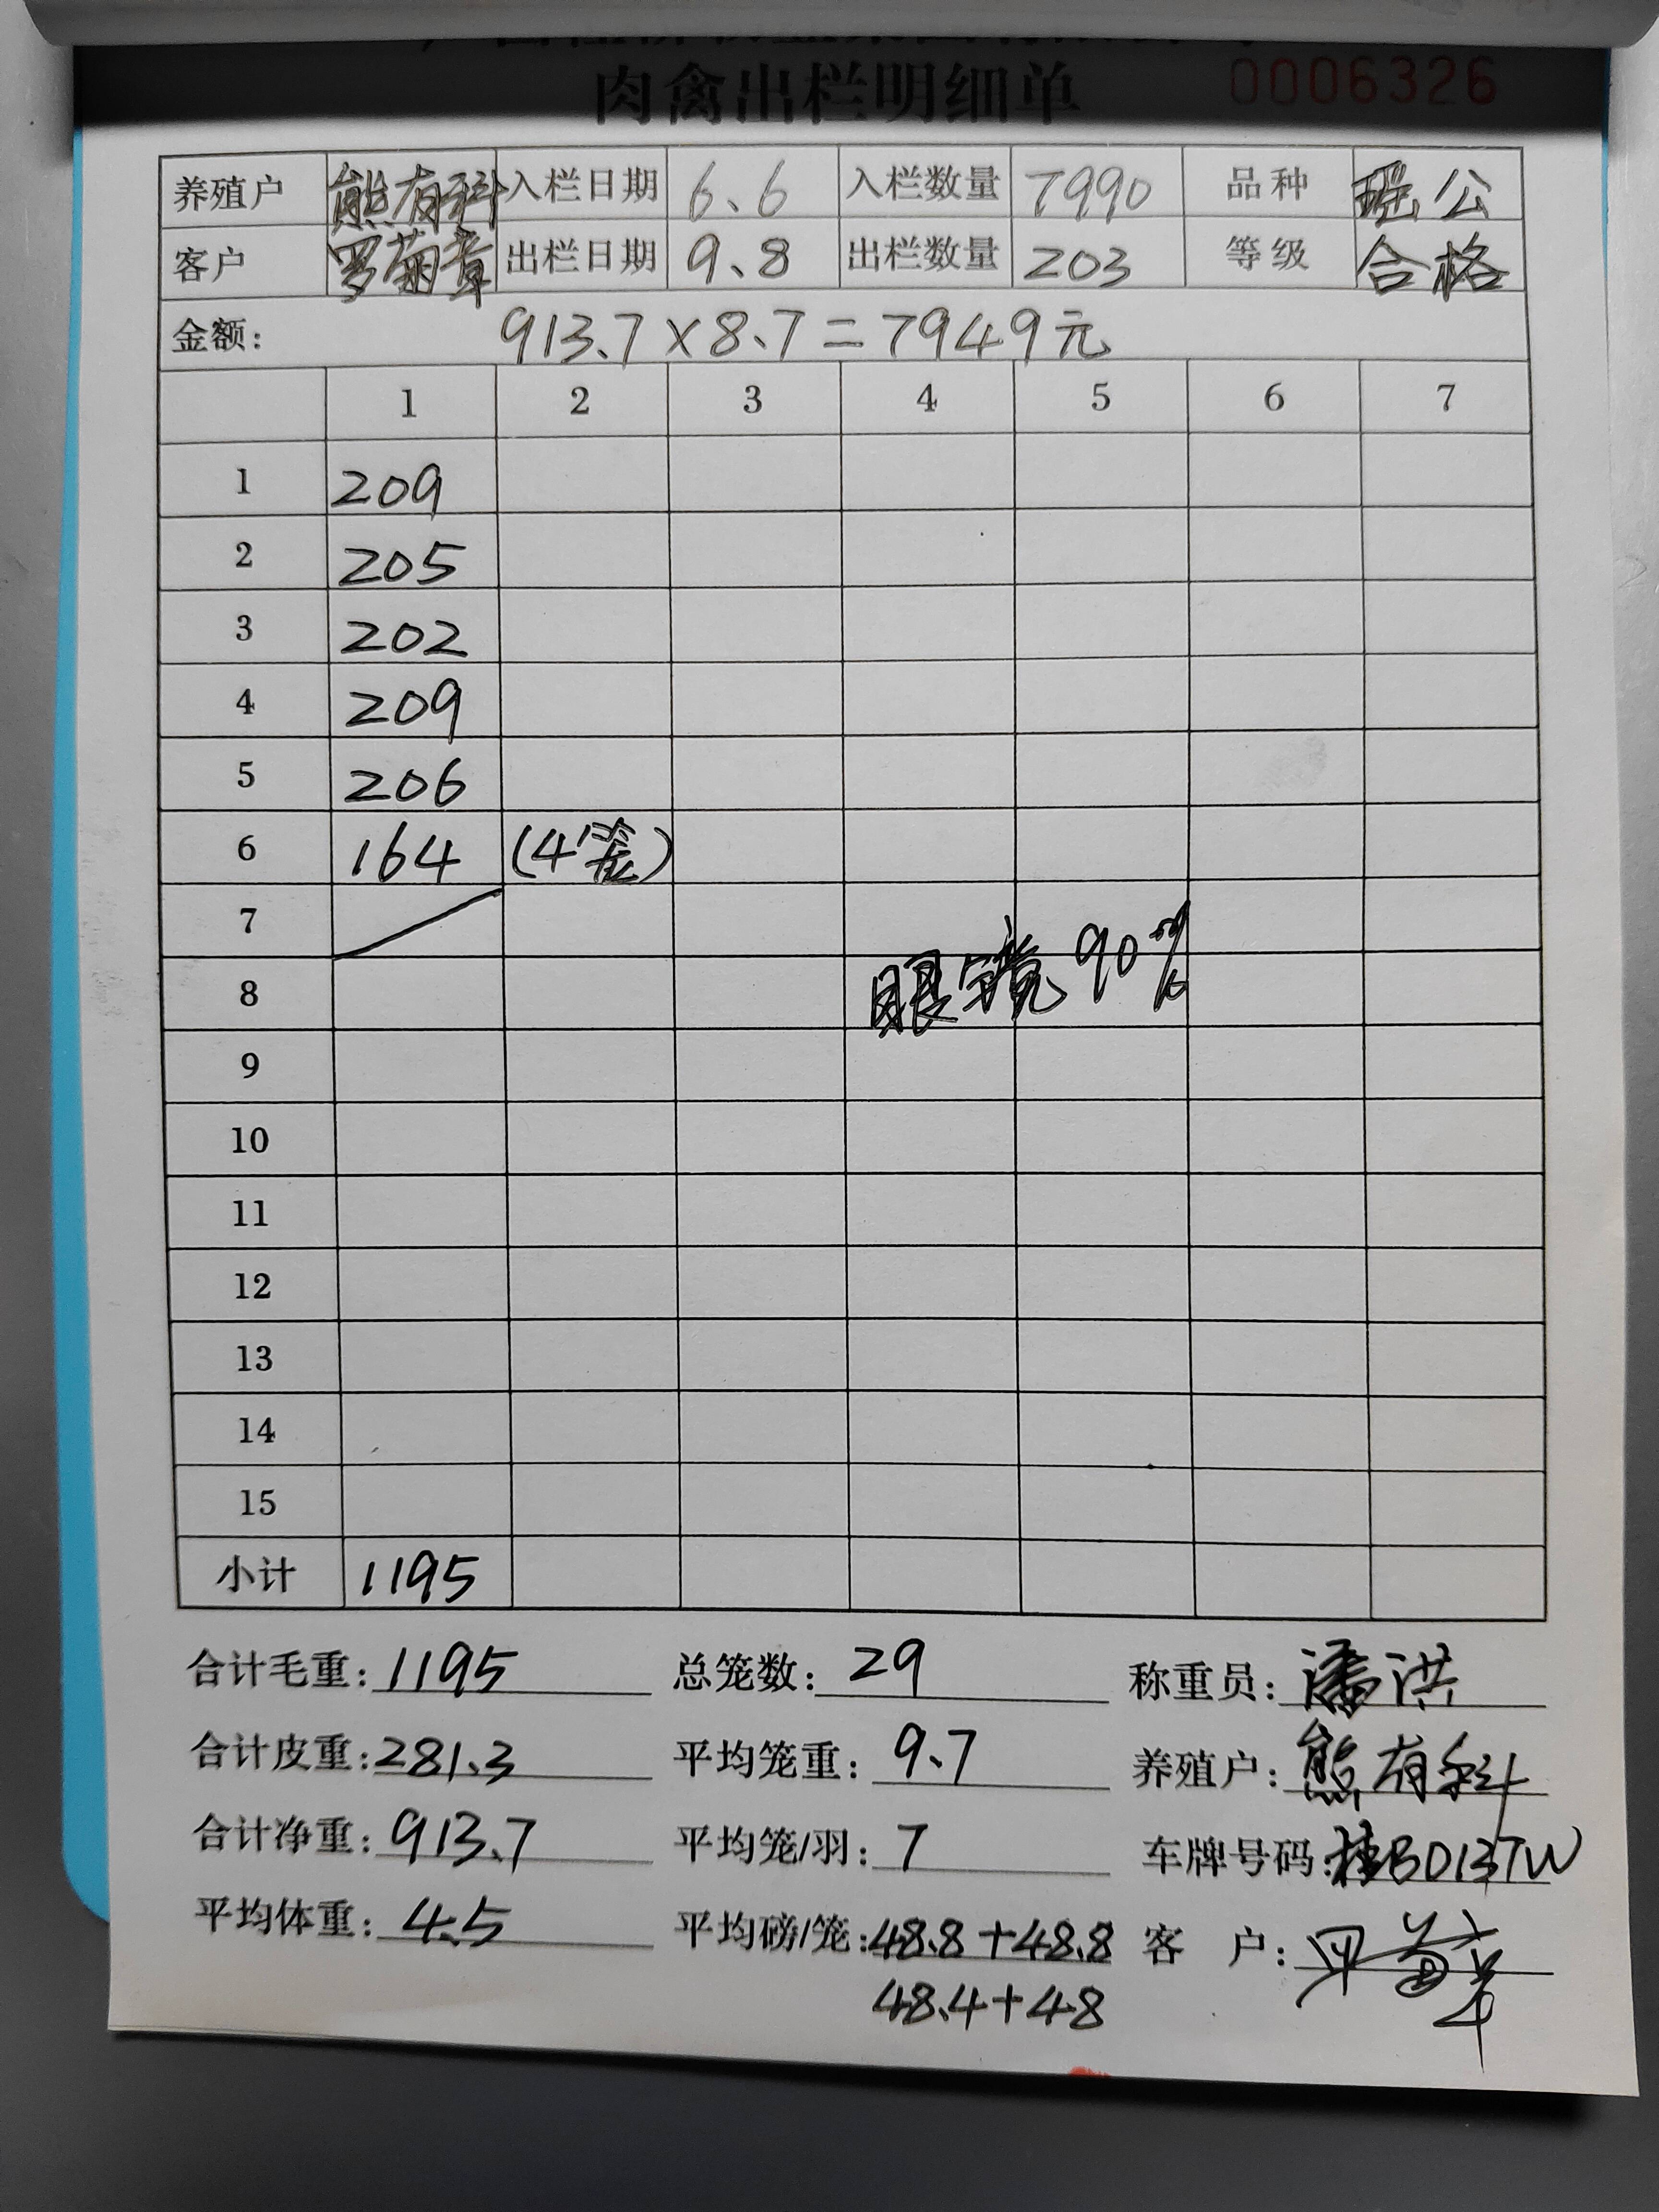 肉禽出栏明细单 0006326
养殖户 熊有科 入栏日期 6.6 入栏数量 7990 品种 瑶公
客户 罗菊章 出栏日期 9.8 出栏数量 203 等级 合格
金额: 913.7×8.7=7949元
1 2 3 4 5 6 7
1 209
2 205
3 202
4 209
5 206
6 164 (4笼)
7
眼镜90%
8
9
10
11
12
13
14
15
小计 1195
合计毛重:1195 总笼数:29 称重员:潘洪
合计皮重:281.3 平均笼重:9.7 养殖户:熊有科
合计净重:913.7 平均笼/羽:7 车牌号码:桂BD13TW
平均体重:4.5 平均磅/笼:48.8+48.8 客户:
48.4+48